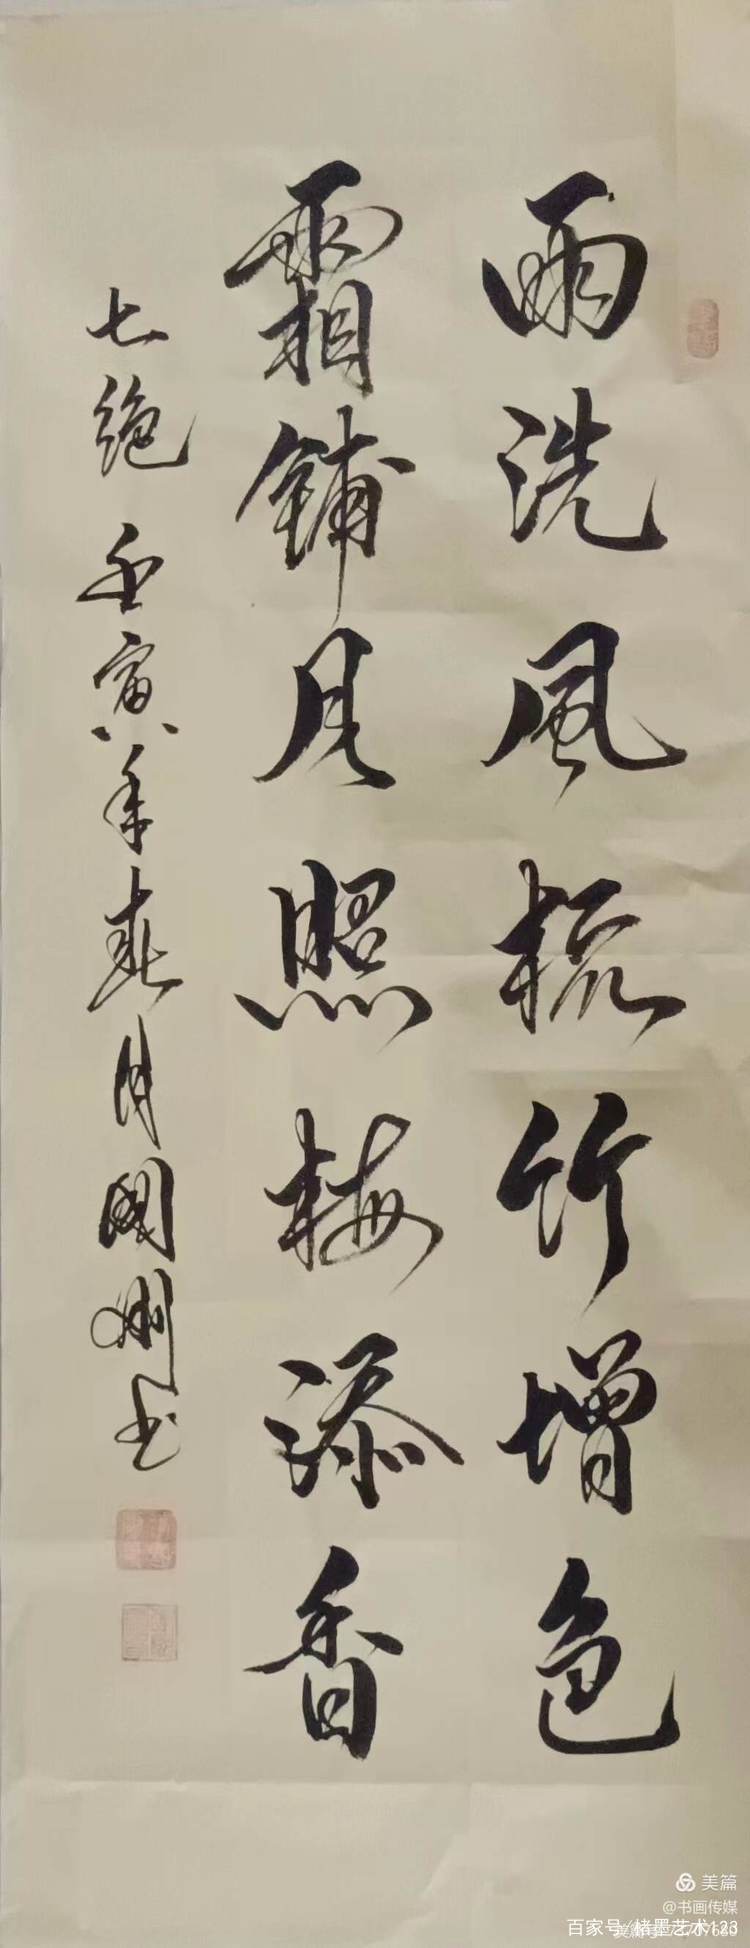 雨洗风梳竹增色
霜铺月照梅添香
七绝 壬寅年春月国刚书
美篇
@书画传媒
百家号/楮墨艺术123